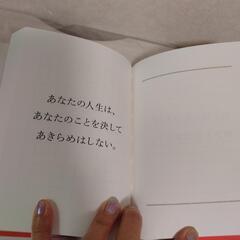 あなたの人生は、
あなたのことを決して
あきらめはしない。